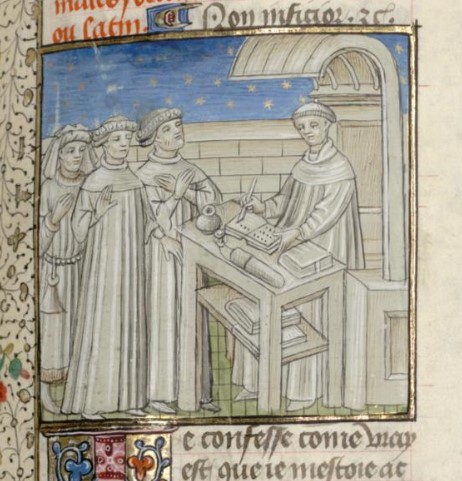 ou latin. Non inficior. ⁊c.
Ie confesse come vray
est que ie mestoie ac